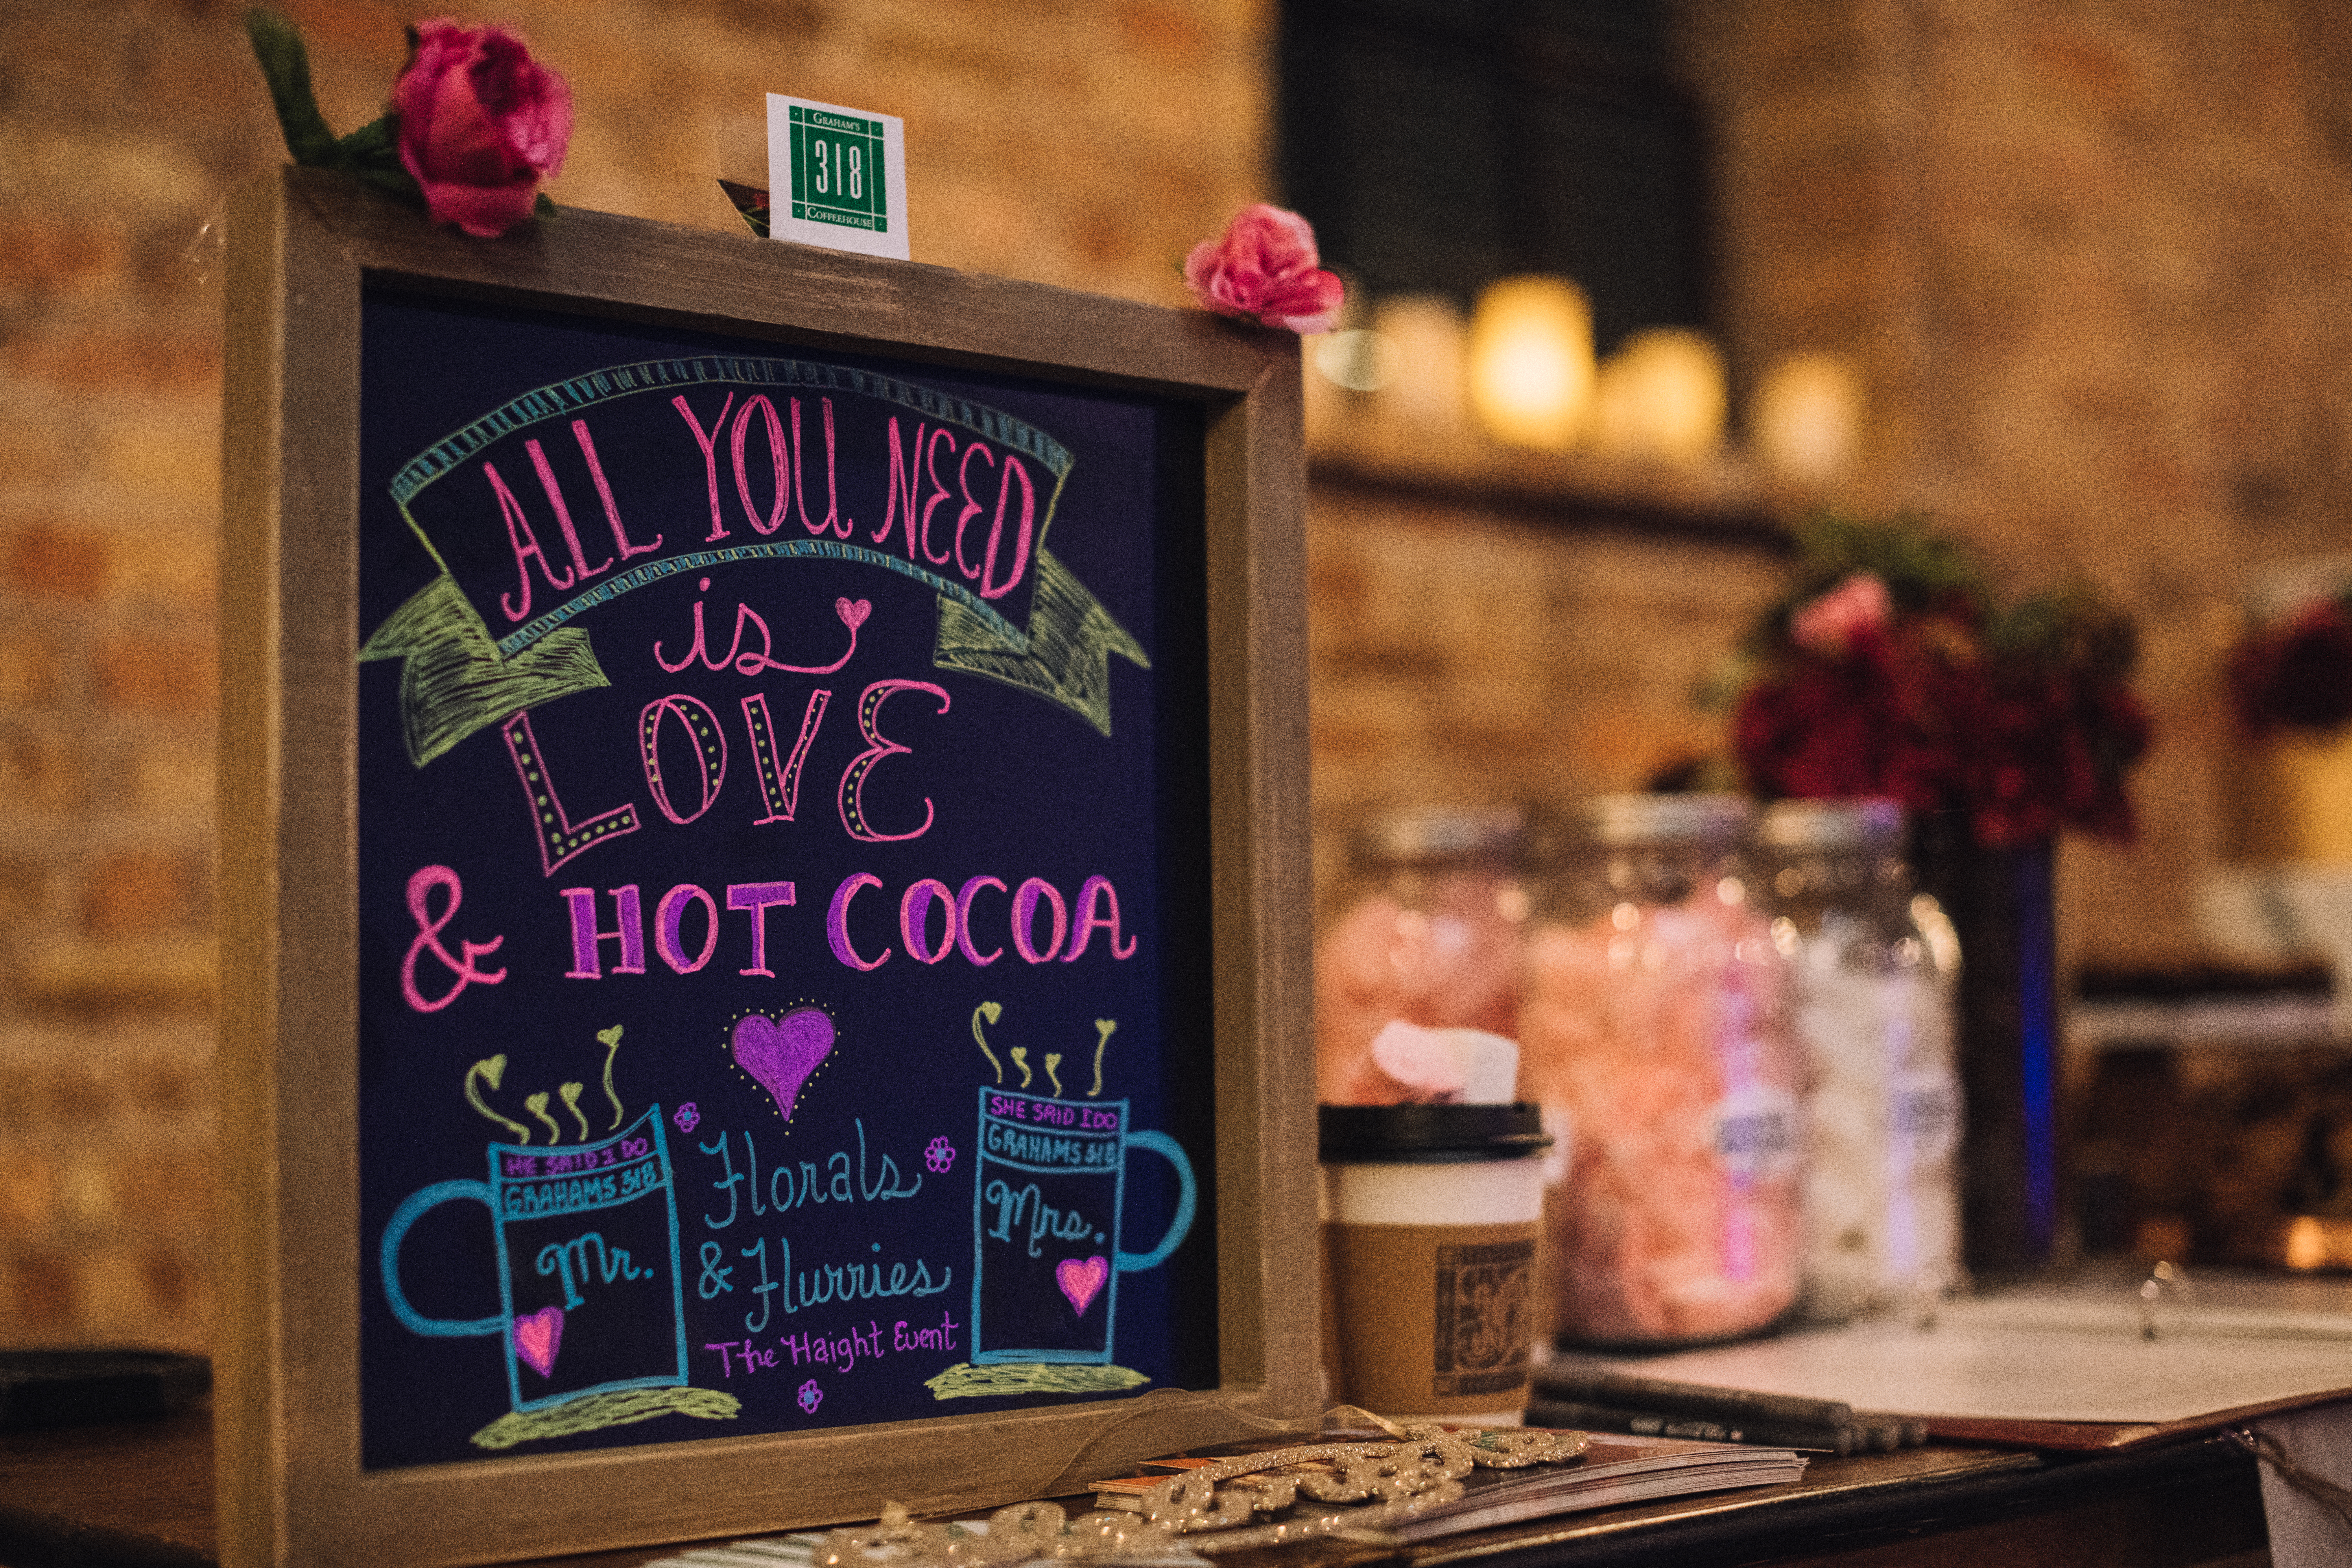 GRAHAM'S
318
COFFEEHOUSE
ALL YOU NEED
is
LOVE
& HOT COCOA
HE SAID I DO
GRAHAMS 318
Mr.
Florals
& Flurries
The Haight Event
SHE SAID I DO
GRAHAMS 318
Mrs.